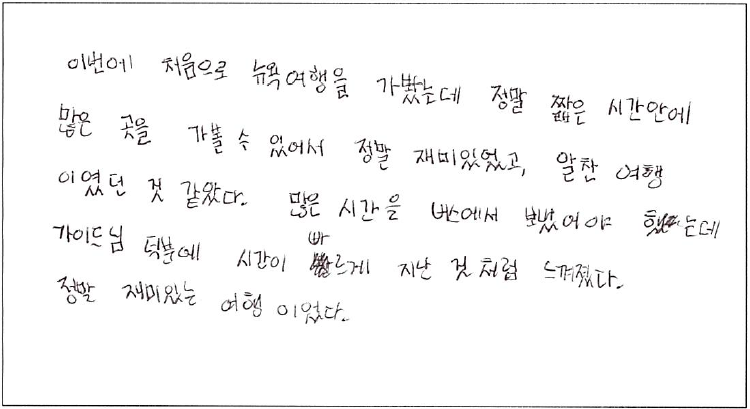 이번에 처음으로 뉴욕여행을 가봤는데 정말 짧은 시간안에
많은 곳을 가볼 수 있어서 정말 재미있었고, 알찬 여행
이였던 것 같았다. 많은 시간을 버스에서 보냈어야 했는데
가이드님 덕분에 시간이 빠르게 지난 것처럼 느껴졌다.
정말 재미있는 여행이었다.